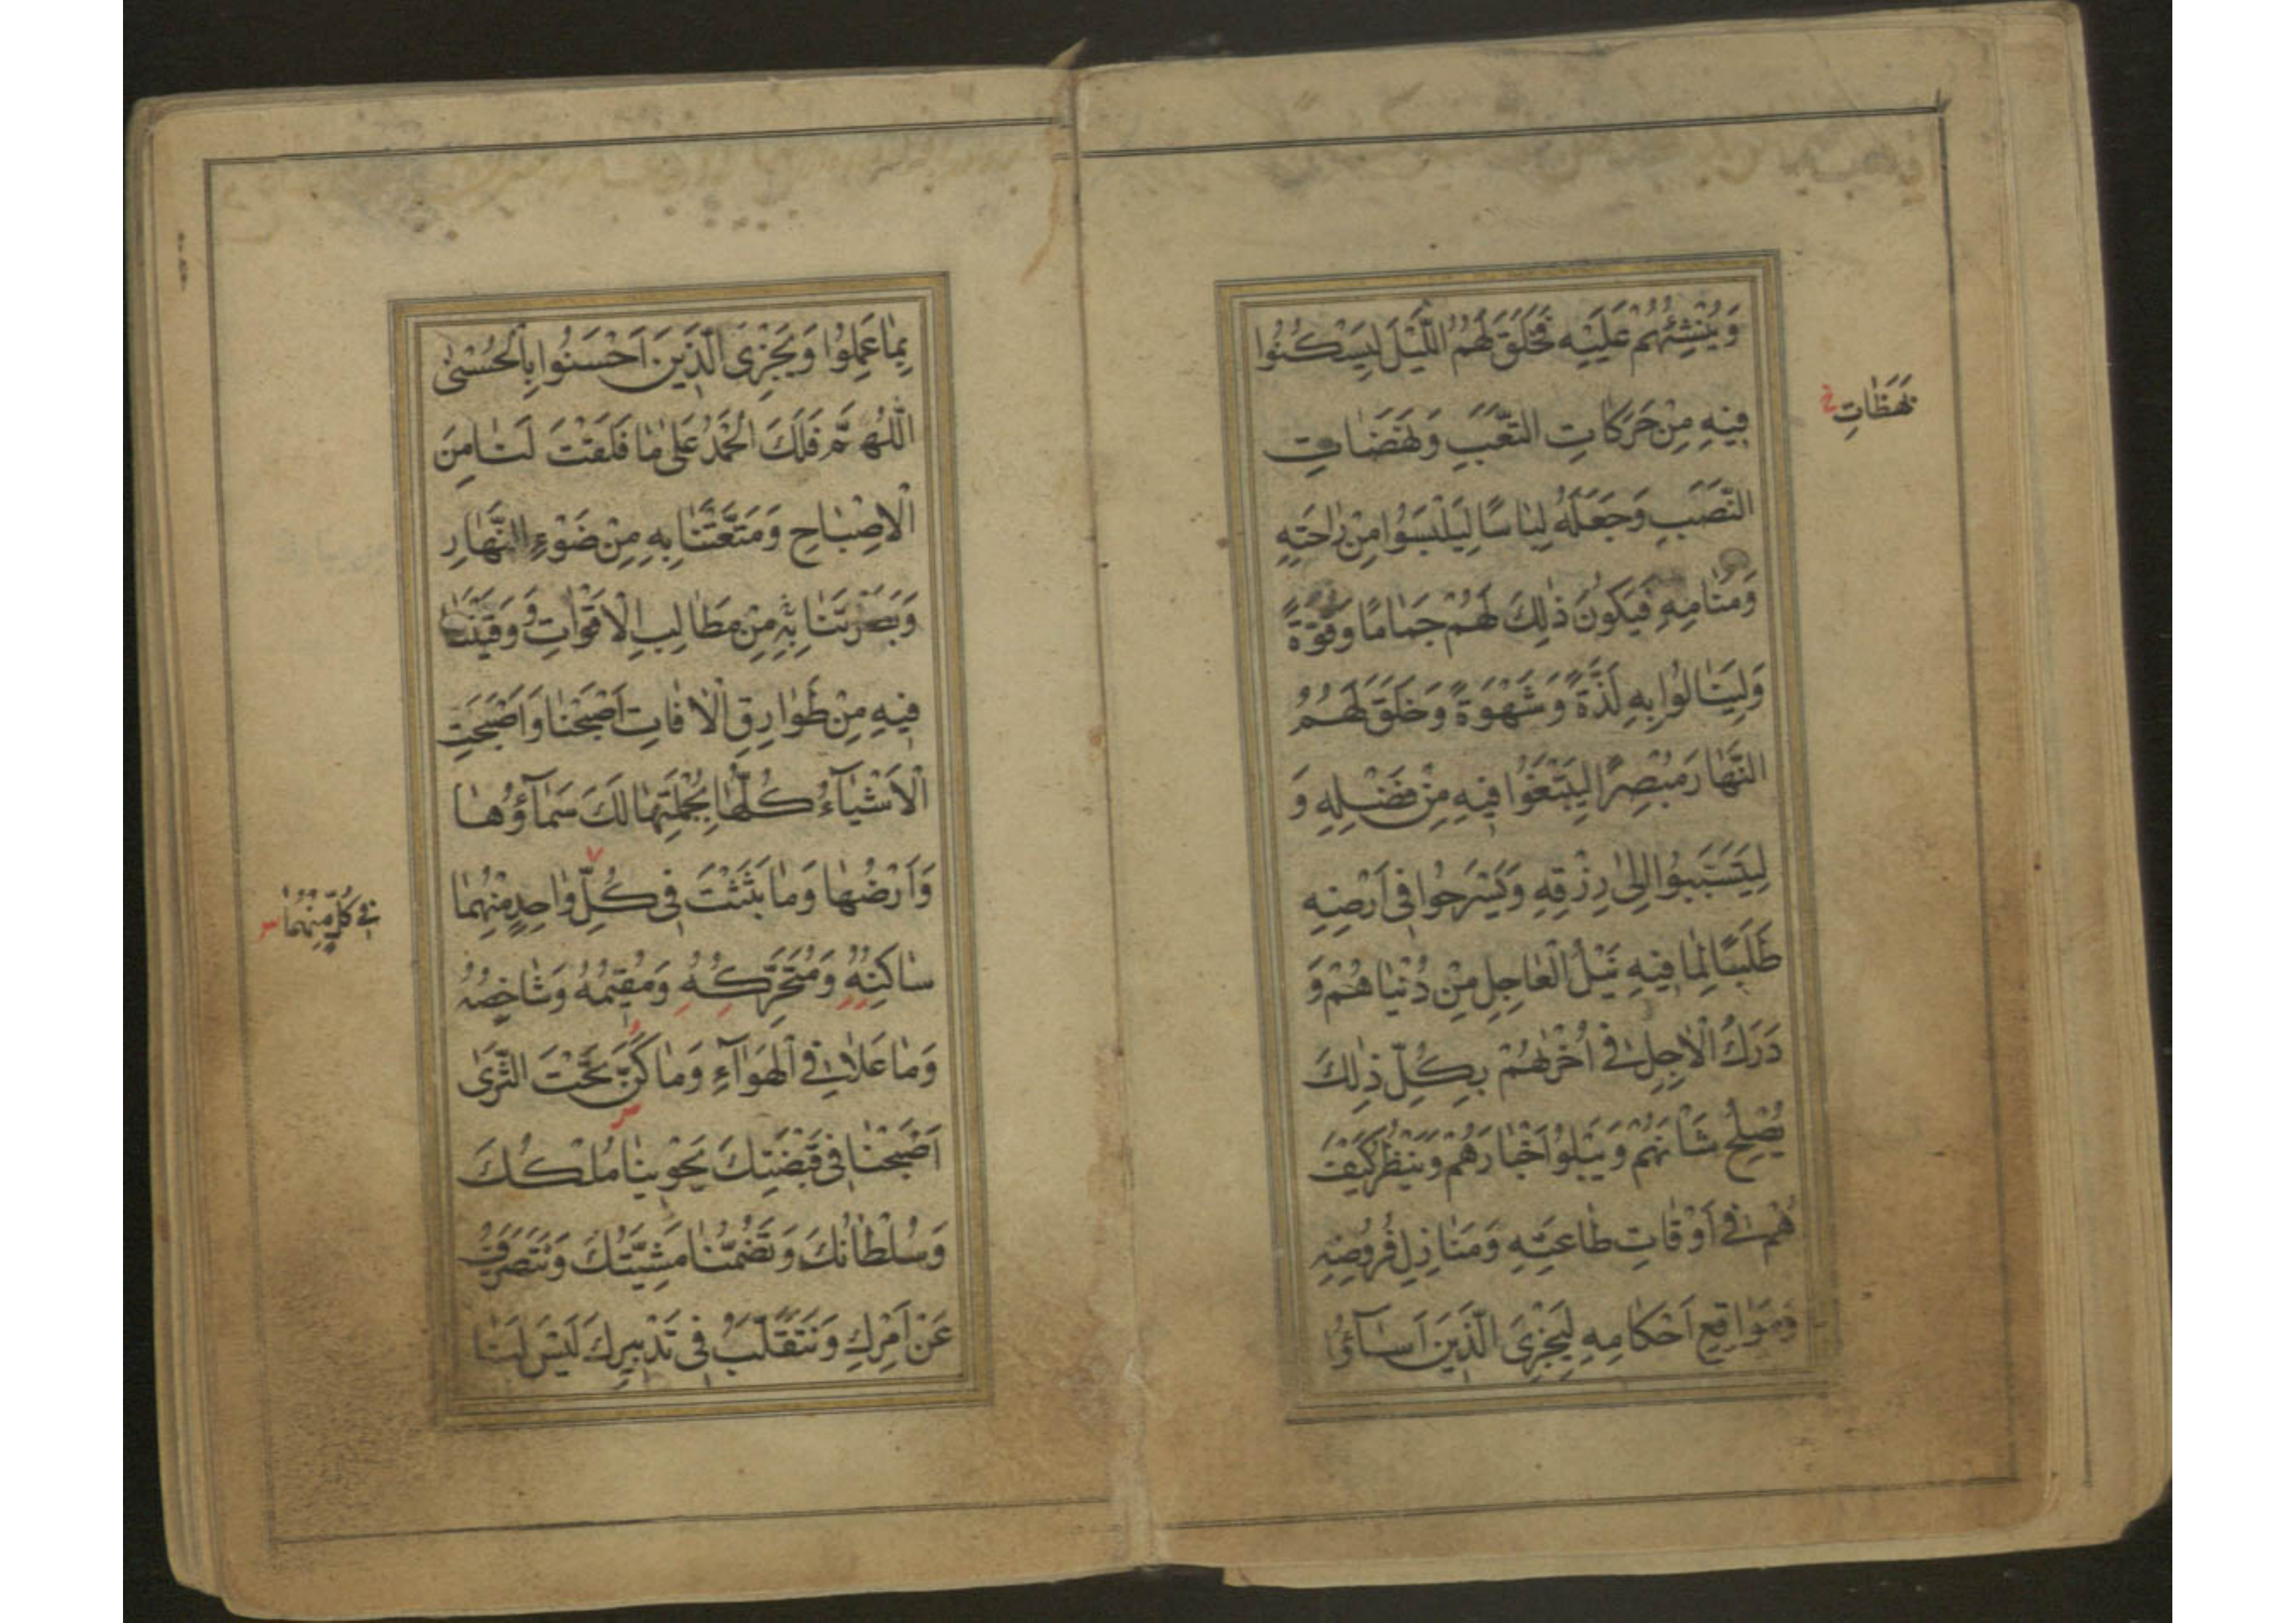 وَيُنْشِئُهُمْ عَلَيْهِ فَخَلَقَ لَهُمُ اللَّيْلَ لِيَسْكُنُوا
فِيهِ مِنْ حَرَكَاتِ التَّعَبِ وَنَهَضَاتِ
بَهَظَاتِ خ
النَّصَبِ وَجَعَلَهُ لِبَاسًا لِيَلْبَسُوا مِنْ رَاحَتِهِ
وَمَنَامِهِ فَيَكُونَ ذٰلِكَ لَهُمْ جَمَامًا وَقُوَّةً
وَلِيَنَالُوا بِهِ لَذَّةً وَشَهْوَةً وَخَلَقَ لَهُمُ
النَّهَارَ مُبْصِرًا لِيَبْتَغُوا فِيهِ مِنْ فَضْلِهِ وَ
لِيَتَسَبَّبُوا إِلَى رِزْقِهِ وَيَسْرَحُوا فِي أَرْضِهِ
طَلَبًا لِمَا فِيهِ نَيْلُ الْعَاجِلِ مِنْ دُنْيَاهُمْ وَ
دَرَكُ الْآجِلِ فِي أُخْرٰهُمْ بِكُلِّ ذٰلِكَ
يُصْلِحُ شَأْنَهُمْ وَيَبْلُو أَخْبَارَهُمْ وَيَنْظُرُ كَيْفَ
هُمْ فِي أَوْقَاتِ طَاعَتِهِ وَمَنَازِلِ فُرُوضِهِ
وَمَوَاقِعِ أَحْكَامِهِ لِيَجْزِيَ الَّذِينَ أَسَآؤُا
بِمَا عَمِلُوا وَيَجْزِيَ الَّذِينَ أَحْسَنُوا بِالْحُسْنٰى
اللّٰهُمَّ فَلَكَ الْحَمْدُ عَلٰى مَا فَلَقْتَ لَنَا مِنَ
الْإِصْبَاحِ وَمَتَّعْتَنَا بِهِ مِنْ ضَوْءِ النَّهَارِ
وَبَصَّرْتَنَا بِهِ مِنْ مَطَالِبِ الْأَقْوَاتِ وَوَقَيْتَنَا
فِيهِ مِنْ طَوَارِقِ الْآفَاتِ أَصْبَحْنَا وَأَصْبَحَتِ
الْأَشْيَآءُ كُلُّهَا بِجُمْلَتِهَا لَكَ سَمَآؤُهَا
وَأَرْضُهَا وَمَا بَثَثْتَ فِي كُلِّ وَاحِدٍ مِنْهُمَا
فِي كُلٍّ مِنْهُمَا
سَاكِنُهُ وَمُتَحَرِّكُهُ وَمُقِيمُهُ وَشَاخِصُهُ
وَمَا عَلَا فِي الْهَوَآءِ وَمَا كَنَّ تَحْتَ الثَّرٰى
أَصْبَحْنَا فِي قَبْضَتِكَ يَحْوِينَا مُلْكُكَ
وَسُلْطَانُكَ وَتَضُمُّنَا مَشِيَّتُكَ وَنَتَصَرَّفُ
عَنْ أَمْرِكَ وَنَتَقَلَّبُ فِي تَدْبِيرِكَ لَيْسَ لَنَا